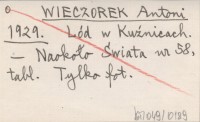 WIECZOREK Antoni
1929. Lód w Kuźnicach.
— Naokoło Świata nr 58,
tabl. Tylko fot.
b7049/0189